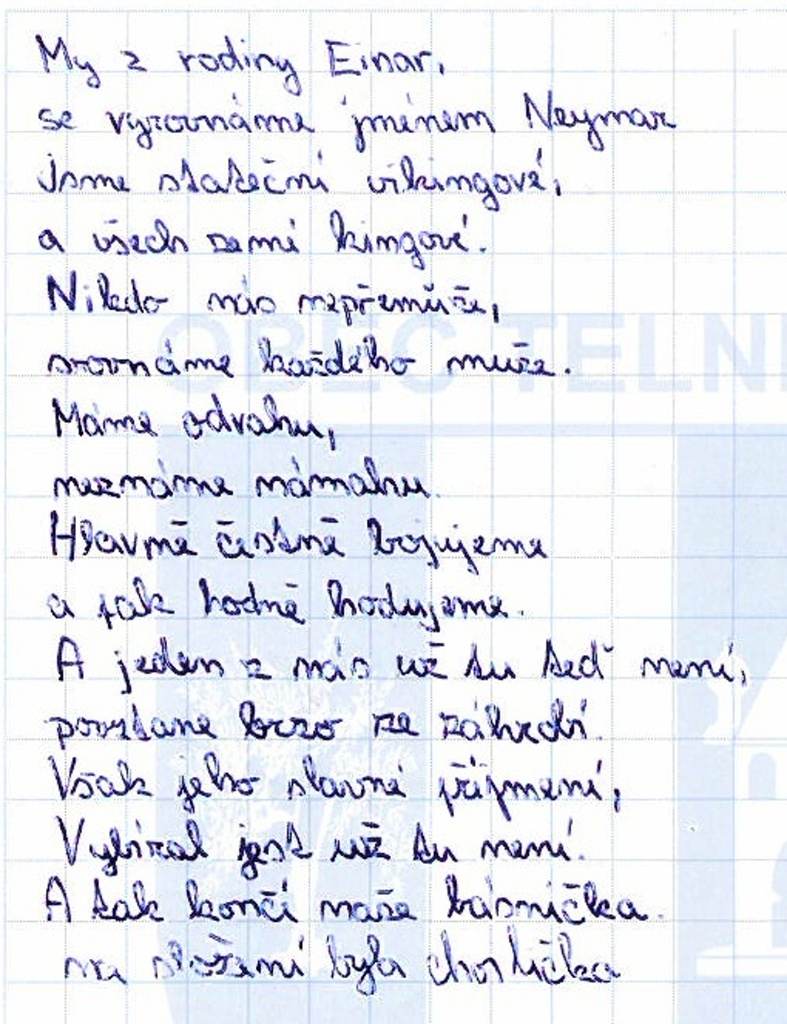 My z rodiny Einar,
se vyrovnáme jménem Neymar
jsme stateční vikingové,
a všech zemí kingové.
Nikdo nás nepřemůže,
srovnáme každého muže.
OBEC TELNI
Máme odvahu,
neznáme námahu.
Hlavně čestně bojujeme
a pak hodně hodujeme.
A jeden z nás už tu teď není,
povstane brzo ze záhrobí.
Však jeho slavné příjmení,
Vybíral jest už tu není.
A tak končí naše básnička.
na složení byla chvilička